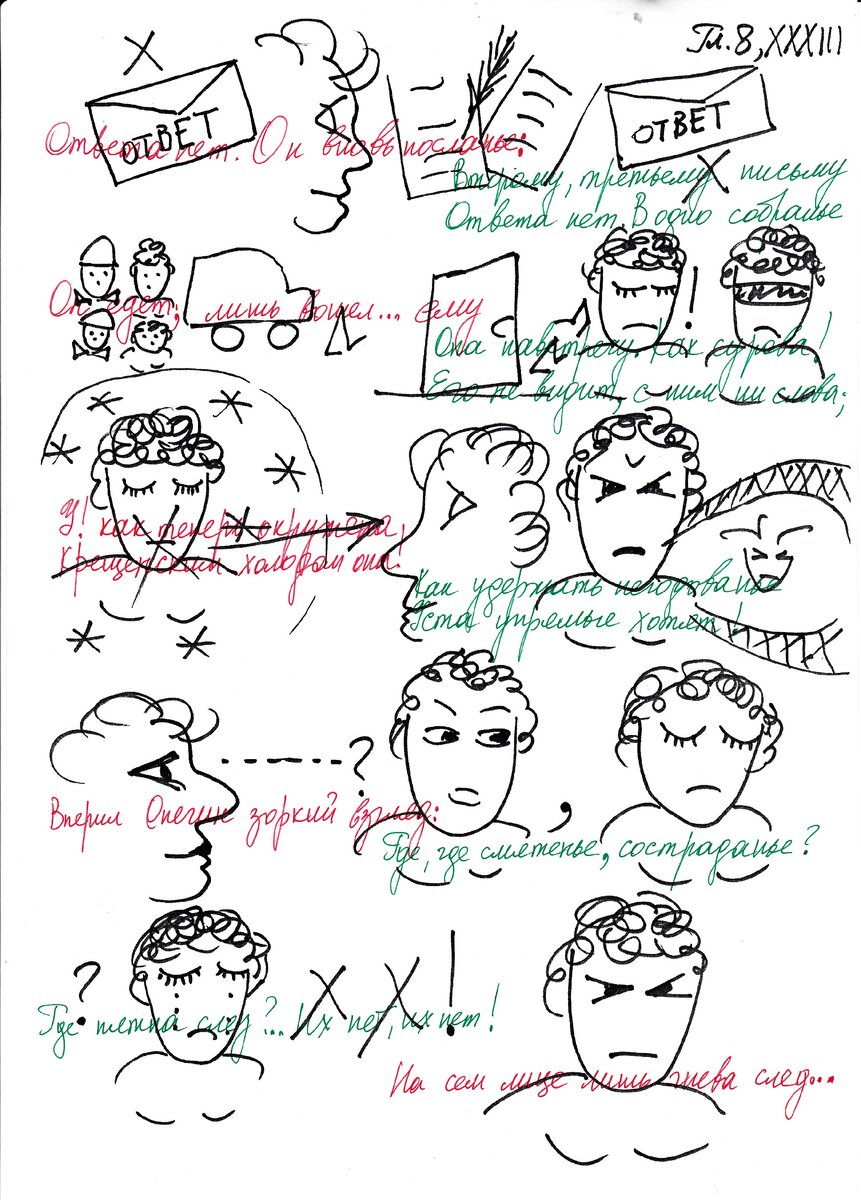 Гл. 8, XXXIII
ОТВЕТ
ОТВЕТ
Ответа нет. Он вновь посланье:
Второму, третьему письму
Ответа нет. В одно собранье
Он едет; лишь вошел... ему
Она навстречу. Как сурова!
Его не видит, с ним ни слова;
У! как теперь окружена
Крещенским холодом она!
Как удержать негодованье
Уста упрямые хотят!
Вперил Онегин зоркий взгляд:
Где, где смятенье, состраданье?
?
Где пятна слез?.. Их нет, их нет!
На сем лице лишь гнева след...